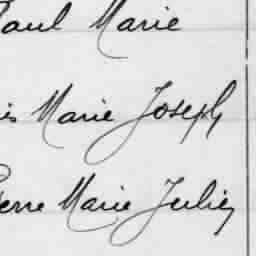 Paul Marie
is Marie Joseph
ierre Marie Julien